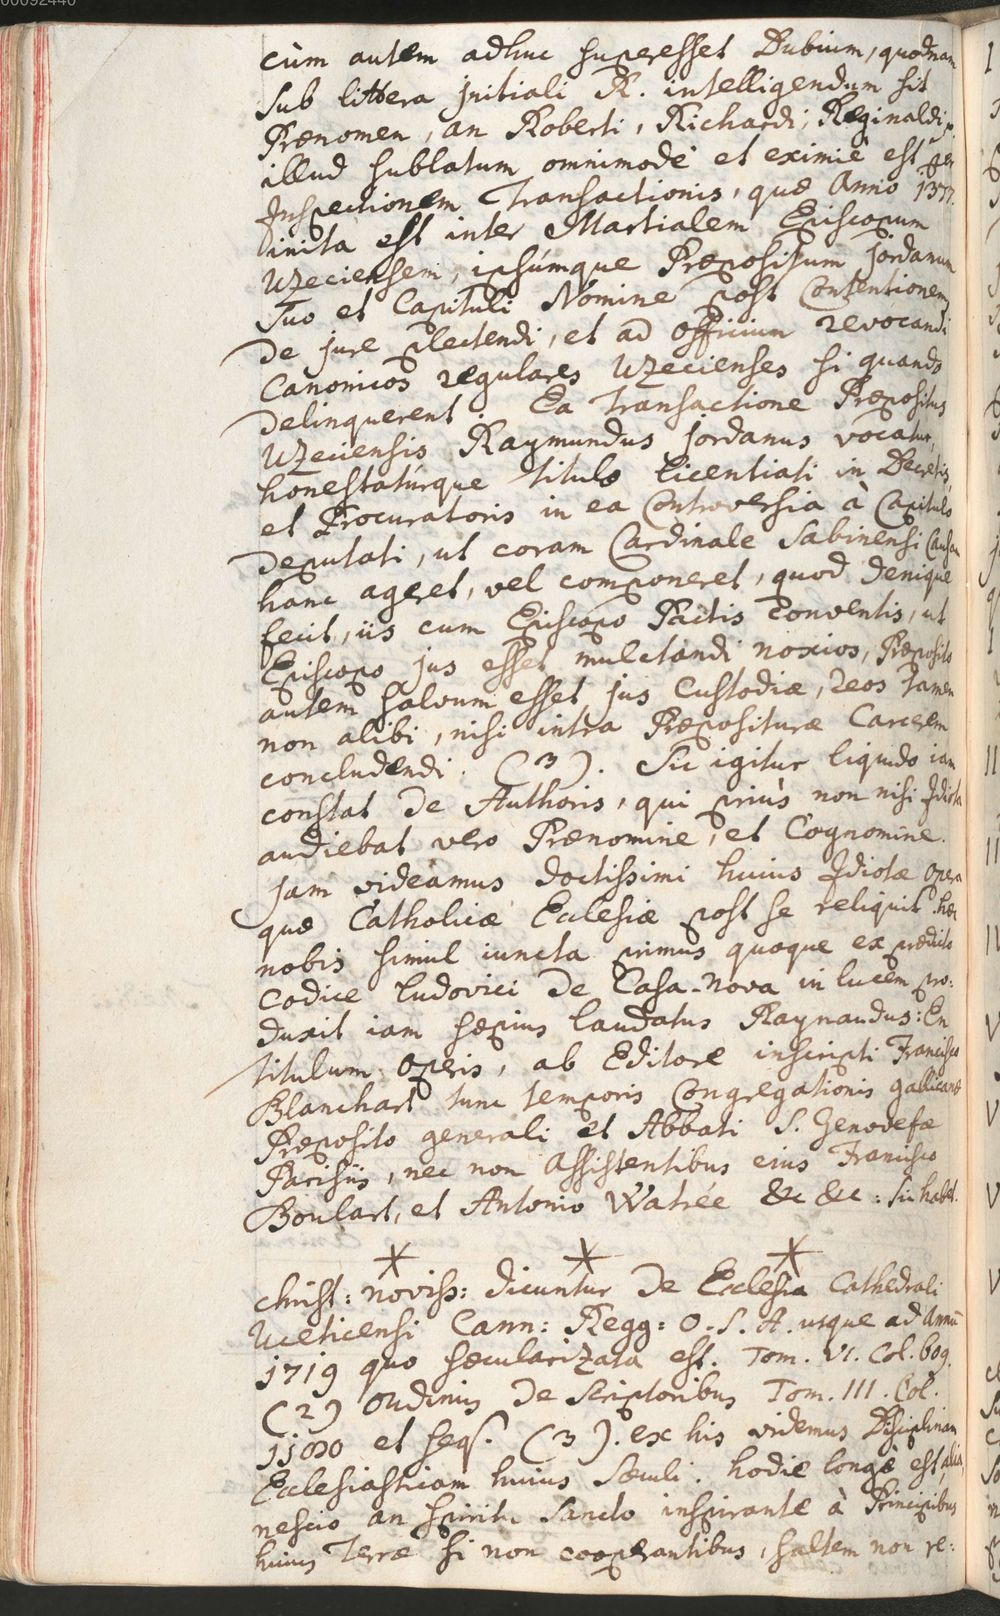 00092440
cùm autem adhuc superesset Dubium, quodnam
sub littera jnitiali R. intelligendum sit
Prænomen, an Roberti, Richardi, Reginaldi
illud sublatum omnimodè et eximiè est per
Jnspectionem Transactionis, quæ Anno 1377.
inita est inter Martialem Episcopum
Uzeciensem, ipsúmque Præpositum Jordanum
suo et Capituli Nomine post Contentionem
de jure plectendi, et ad officium revocandi
Canonicos regulares Uzecienses si quando
delinquerent. Ea Transactione Præpositus
Uzeciensis Raymundus Jordanus vocatur,
honestatúrque titulo licentiati in Decretis,
et Procuratoris in ea Controversia à Capitulo
deputati, ut coram Cardinale Sabinensi Causam
hanc ageret, vel componeret, quod denique
fecit, iis cum Episcopo Pactis conventis, ut
Episcopo jus esset mulctandi noxios, Præposito
autem salvum esset jus Custodiæ, reos tamen
non alibi, nisi intra Præposituræ Carcerem
concludendi. (3). Sic igitur liquido iam
constat de Authoris, qui priùs non nisi Jdiota
audiebat vero Prænomine, et Cognomine.
Jam videamus doctissimi huius Jdiotæ opera
quæ Catholicæ Ecclesiæ post se reliquit. hæc
nobis simul iuncta primus quoque ex prædicto
codice ludovici de Casa-nova in lucem pro:
duxit iam sæpius laudatus Raynaudus: En
titulum operis, ab Editore inscripti Francisco
Blanchart tunc temporis Congregationis gallicanæ
Præposito generali et Abbati S. Genovefæ
Parisiis, nec non Assistentibus eius Francisco
Boulart, et Antonio Watrée &c &c: sic habet.
* * *
Christ: noviss: dicuntur de Ecclesia Cathedrali
Uceticensi Cann: Regg: O. S. A. usque ad Annū
1719 quo sæcularizata est. Tom. VI. Col. 609.
(2) Oudinus de scriptoribus Tom. III. Col.
et seqs. (3). ex his videmus Disciplinam
Ecclesiasticam huius sæculi. hodie longè est alia,
nescio an spiritu Sancto inspirante à Principibus
huius Terræ si non cooperantibus, saltem non re: